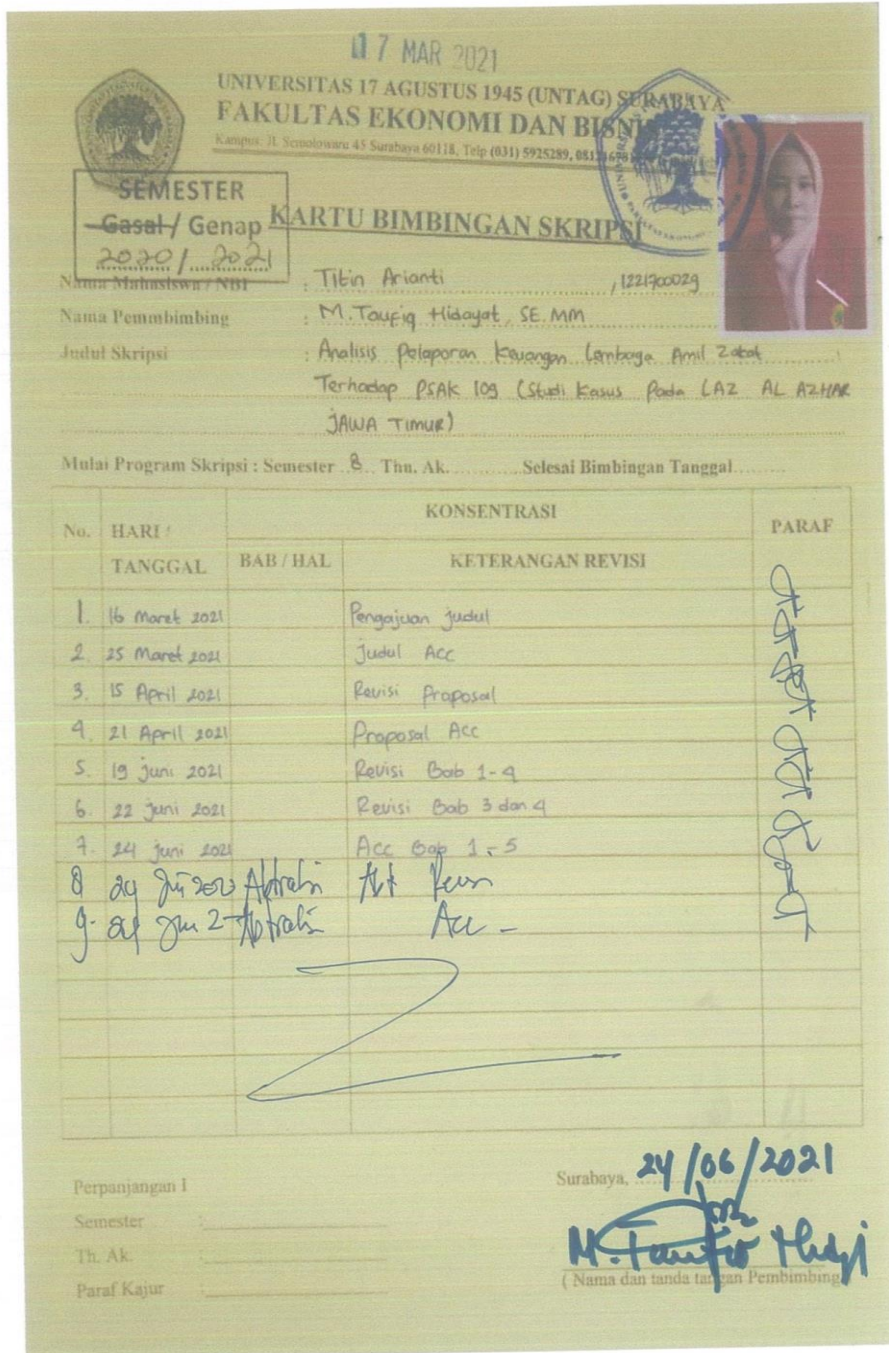 17 MAR 2021
UNIVERSITAS 17 AGUSTUS 1945 (UNTAG) SURABAYA
FAKULTAS EKONOMI DAN BISNIS
Kampus: Jl. Semolowaru 45 Surabaya 60118, Telp (031) 5925289,
SEMESTER
Gasal / Genap
2020 / 2021
KARTU BIMBINGAN SKRIPSI
Nama Mahasiswa / NBI : Titin Arianti , 1221700029
Nama Pemmbimbing : M. Taufiq Hidayat, SE. MM
Judul Skripsi : Analisis Pelaporan Keuangan Lembaga Amil Zakat
Terhadap PSAK 109 (Studi Kasus Pada LAZ AL AZHAR
JAWA TIMUR)
Mulai Program Skripsi : Semester 8 Thn. Ak. Selesai Bimbingan Tanggal
No. HARI / TANGGAL KONSENTRASI PARAF
BAB / HAL KETERANGAN REVISI
1. 16 Maret 2021 Pengajuan judul
2. 25 Maret 2021 Judul Acc
3. 15 April 2021 Revisi Proposal
4. 21 April 2021 Proposal Acc
5. 19 Juni 2021 Revisi Bab 1-4
6. 22 Juni 2021 Revisi Bab 3 dan 4
7. 24 Juni 2021 Acc Bab 1-5
8 24
9. Acc -
Surabaya, 24/06/2021
Perpanjangan I
Semester :
Th. Ak. :
Paraf Kajur :
M. Taufiq
( Nama dan tanda tangan Pembimbing